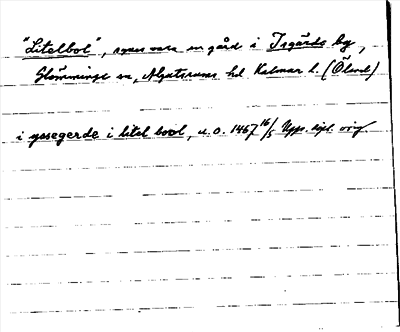 "Litelbol", synes vara en gård i Isgärde by,
Glömminge sn, Algutsrums hd Kalmar l. (Öland)
i yssegerde i litel bool, u.o. 1467 16/5 Upps. dipl. orig.